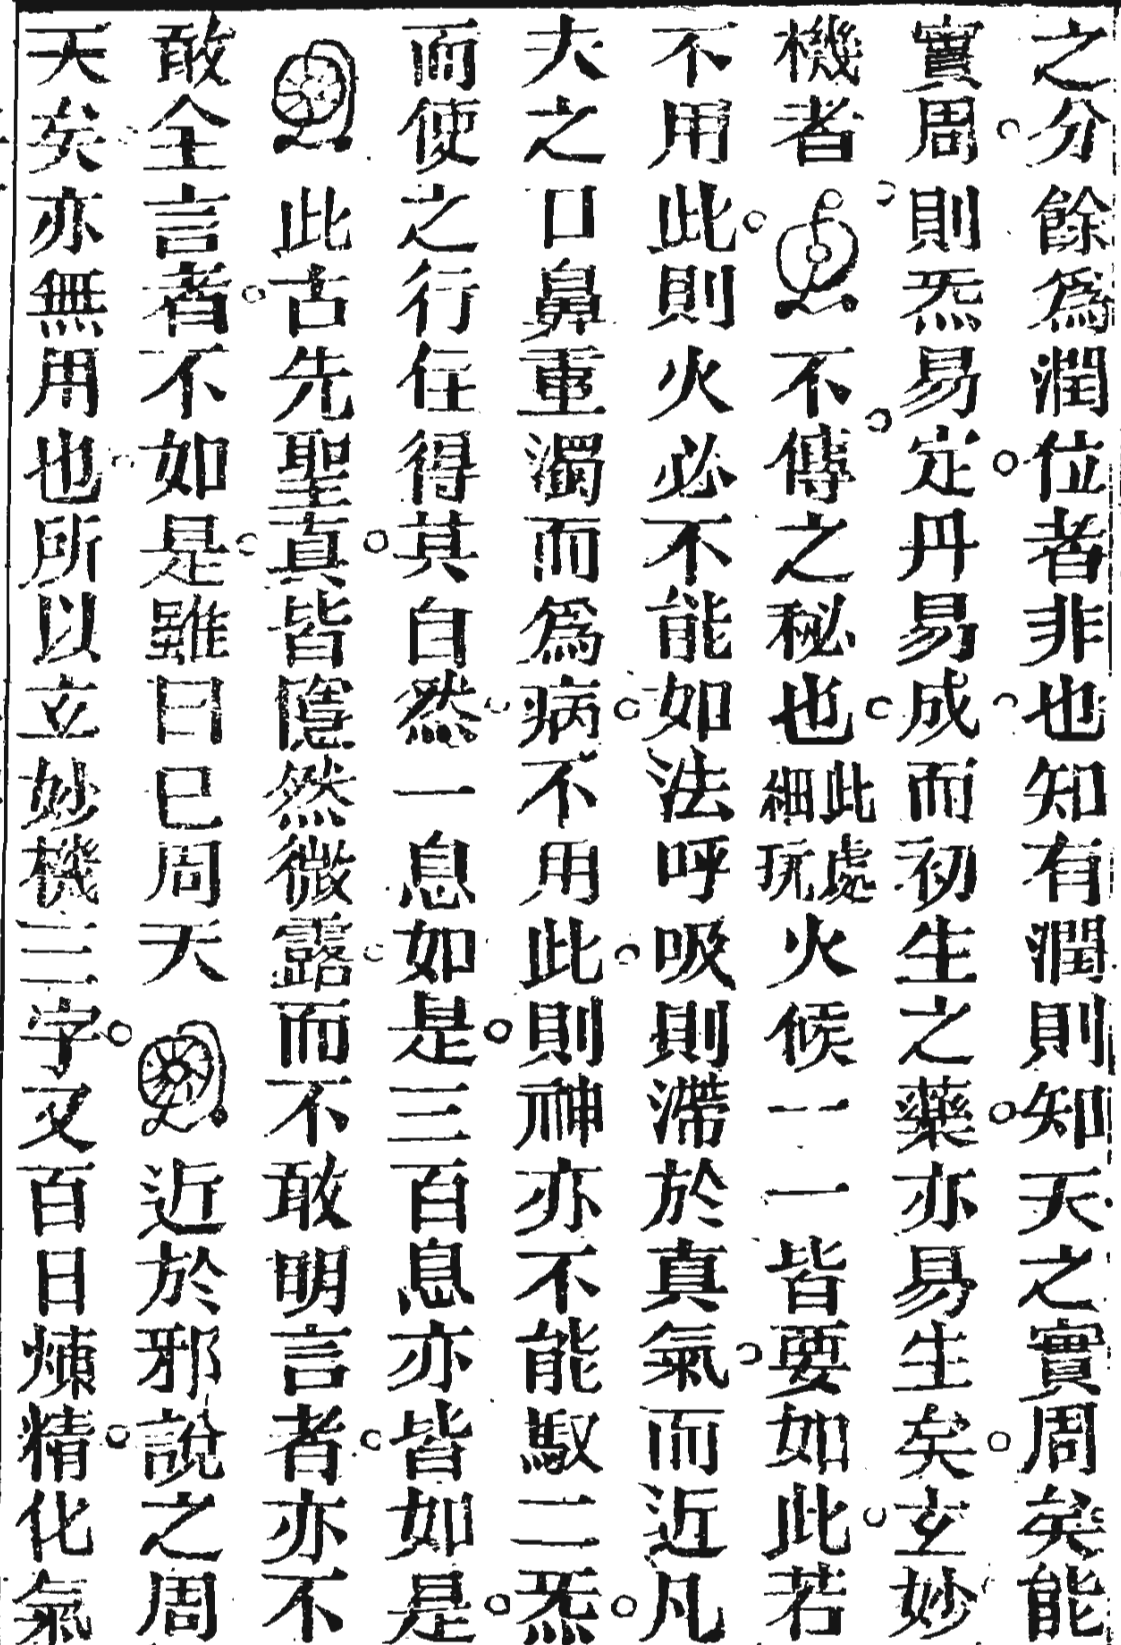 之分餘爲潤位者非也知有潤則知天之實周矣能
實周則炁易定丹易成而初生之藥亦易生矣玄妙
機者不傳之秘也此處細玩火候一一皆要如此若
不用此則火必不能如法呼吸則滯於真氣而近凡
夫之口鼻重濁而爲病不用此則神亦不能馭二炁
而使之行住得其自然一息如是三百息亦皆如是
此古先聖真皆隱然微露而不敢明言者亦不
敢全言者不如是雖日已周天近於邪說之周
天矣亦無用也所以玄妙機三字又百日煉精化氣